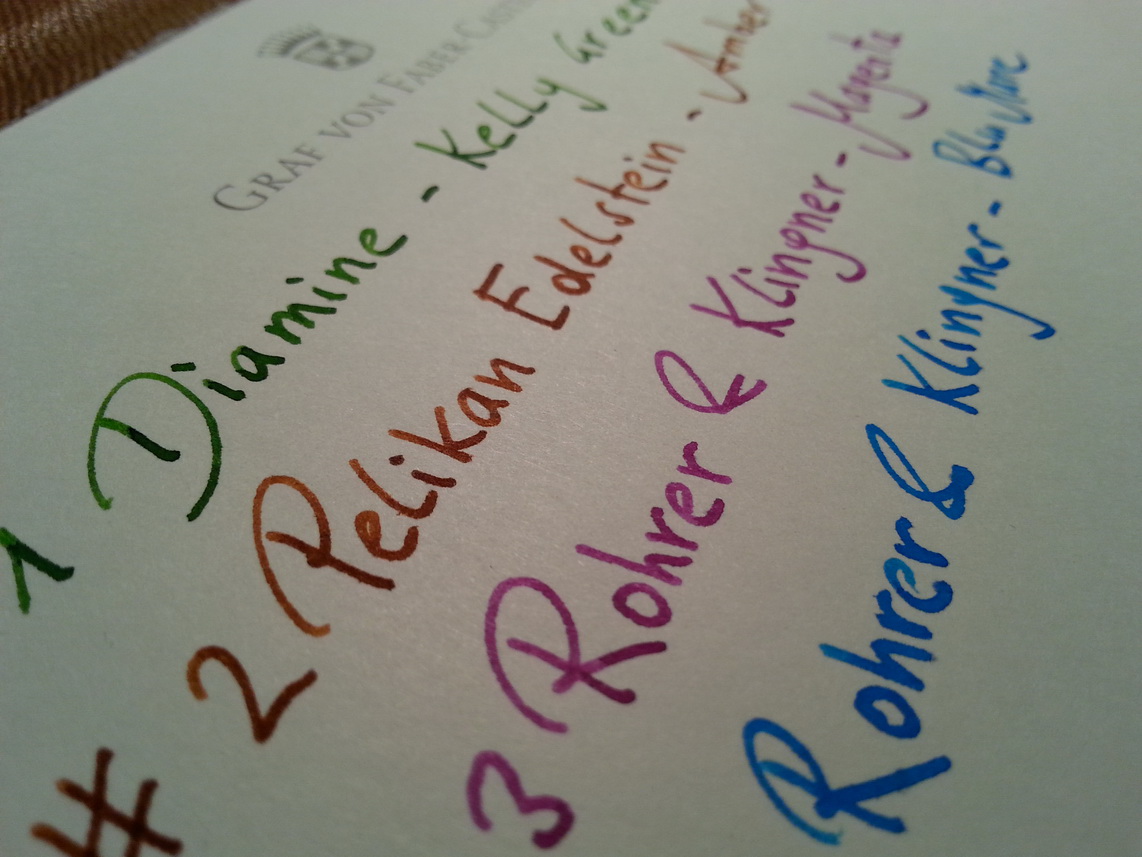 GRAF VON FABER-CASTELL
1 Diamine - Kelly Green
# 2 Pelikan Edelstein - Amber
3 Rohrer & Klingner - Magenta
Rohrer & Klingner - Blau Mare